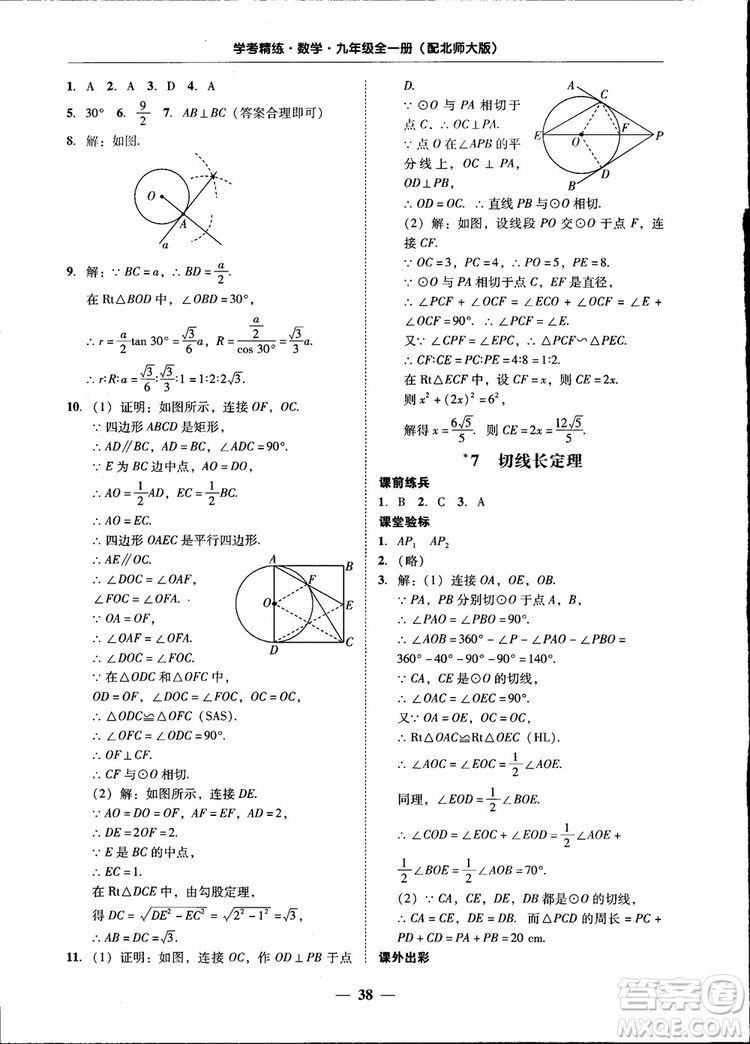 学考精练·数学·九年级全一册(配北师大版)
1. A  2. A  3. D  4. A
5. 30°  6. 9/2  7. AB⊥BC(答案合理即可)
8. 解:如图.
O
A
a
9. 解:∵BC=a,∴BD=a/2.
在Rt△BOD中,∠OBD=30°,
∴r=a/2 tan 30°=√3/6 a,R=(a/2)/cos 30°=√3/3 a.
∴r∶R∶a=√3/6∶√3/3∶1=1∶2∶2√3.
10. (1)证明:如图所示,连接OF,OC.
∵四边形ABCD是矩形,
∴AD∥BC,∠ADC=90°.
∵E为BC边中点,AO=DO,
∴AO=1/2 AD,EC=1/2 BC.
∴AO=EC.
∴四边形OAEC是平行四边形.
∴AE∥OC.
∴∠DOC=∠OAF,
∠FOC=∠OFA.
∵OA=OF,
∴∠OAF=∠OFA.
∴∠DOC=∠FOC.
A B F O E D C
∵在△ODC和△OFC中,
OD=OF,∠DOC=∠FOC,OC=OC,
∴△ODC≌△OFC(SAS).
∴∠OFC=∠ODC=90°.
∴OF⊥CF.
∴CF与⊙O相切.
(2)解:如图,连接DE.
∵AO=DO=OF,AF=EF,AD=2,
∴DE=2OF=2.
∵E是BC的中点,
∴EC=1.
在Rt△DCE中,由勾股定理,
得DC=√(DE²-EC²)=√(2²-1²)=√3,
∴AB=DC=√3.
11. (1)证明:如图,连接OC,作OD⊥PB于点
D.
∵⊙O与PA相切于
点C,∴OC⊥PA.
∵点O在∠APB的平
分线上,OC⊥PA,
OD⊥PB,
A C E O F P D B
∴OD=OC. ∴直线PB与⊙O相切.
(2)解:如图,设线段PO交⊙O于点F,连
接CF.
∵OC=3,PC=4,∴PO=5,PE=8.
∵⊙O与PA相切于点C,EF是直径,
∴∠PCF+∠OCF=∠ECO+∠OCF=∠E+
∠OCF=90°. ∴∠PCF=∠E.
又∵∠CPF=∠EPC,∴△PCF∽△PEC.
∴CF∶CE=PC∶PE=4∶8=1∶2.
在Rt△ECF中,设CF=x,则EC=2x.
则x²+(2x)²=6²,
解得x=6√5/5. 则CE=2x=12√5/5.
*7 切线长定理
课前练兵
1. B  2. C  3. A
课堂验标
1. AP₁  AP₂
2. (略)
3. 解:(1)连接OA,OE,OB.
∵PA,PB分别切⊙O于点A,B,
∴∠PAO=∠PBO=90°.
∴∠AOB=360°-∠P-∠PAO-∠PBO=
360°-40°-90°-90°=140°.
∵CA,CE是⊙O的切线,
∴∠OAC=∠OEC=90°.
又∵OA=OE,OC=OC,
∴Rt△OAC≌Rt△OEC(HL).
∴∠AOC=∠EOC=1/2∠AOE.
同理,∠EOD=1/2∠BOE.
∴∠COD=∠EOC+∠EOD=1/2∠AOE+
1/2∠BOE=1/2∠AOB=70°.
(2)∵CA,CE,DE,DB都是⊙O的切线,
∴CA=CE,DE=DB. 而△PCD的周长=PC+
PD+CD=PA+PB=20 cm.
课外出彩
38
答案圈
MXQE.COM